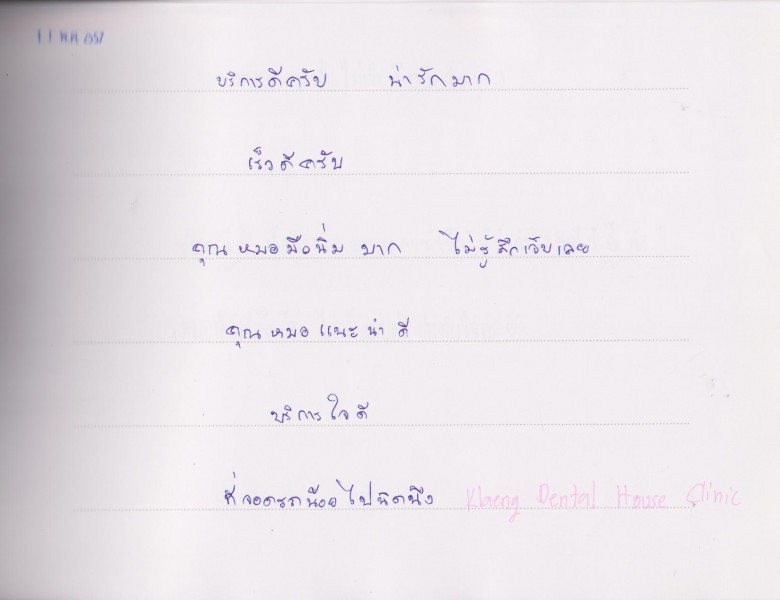 11 พ.ค. 2557
บริการดีครับ น่ารักมาก
เร็วดีครับ
คุณหมอมือนิ่มมาก ไม่รู้สึกเจ็บเลย
คุณหมอแนะนำดี
บริการใจดี
ที่จอดรถน้อยไปนิดนึง Klaeng Dental House Clinic